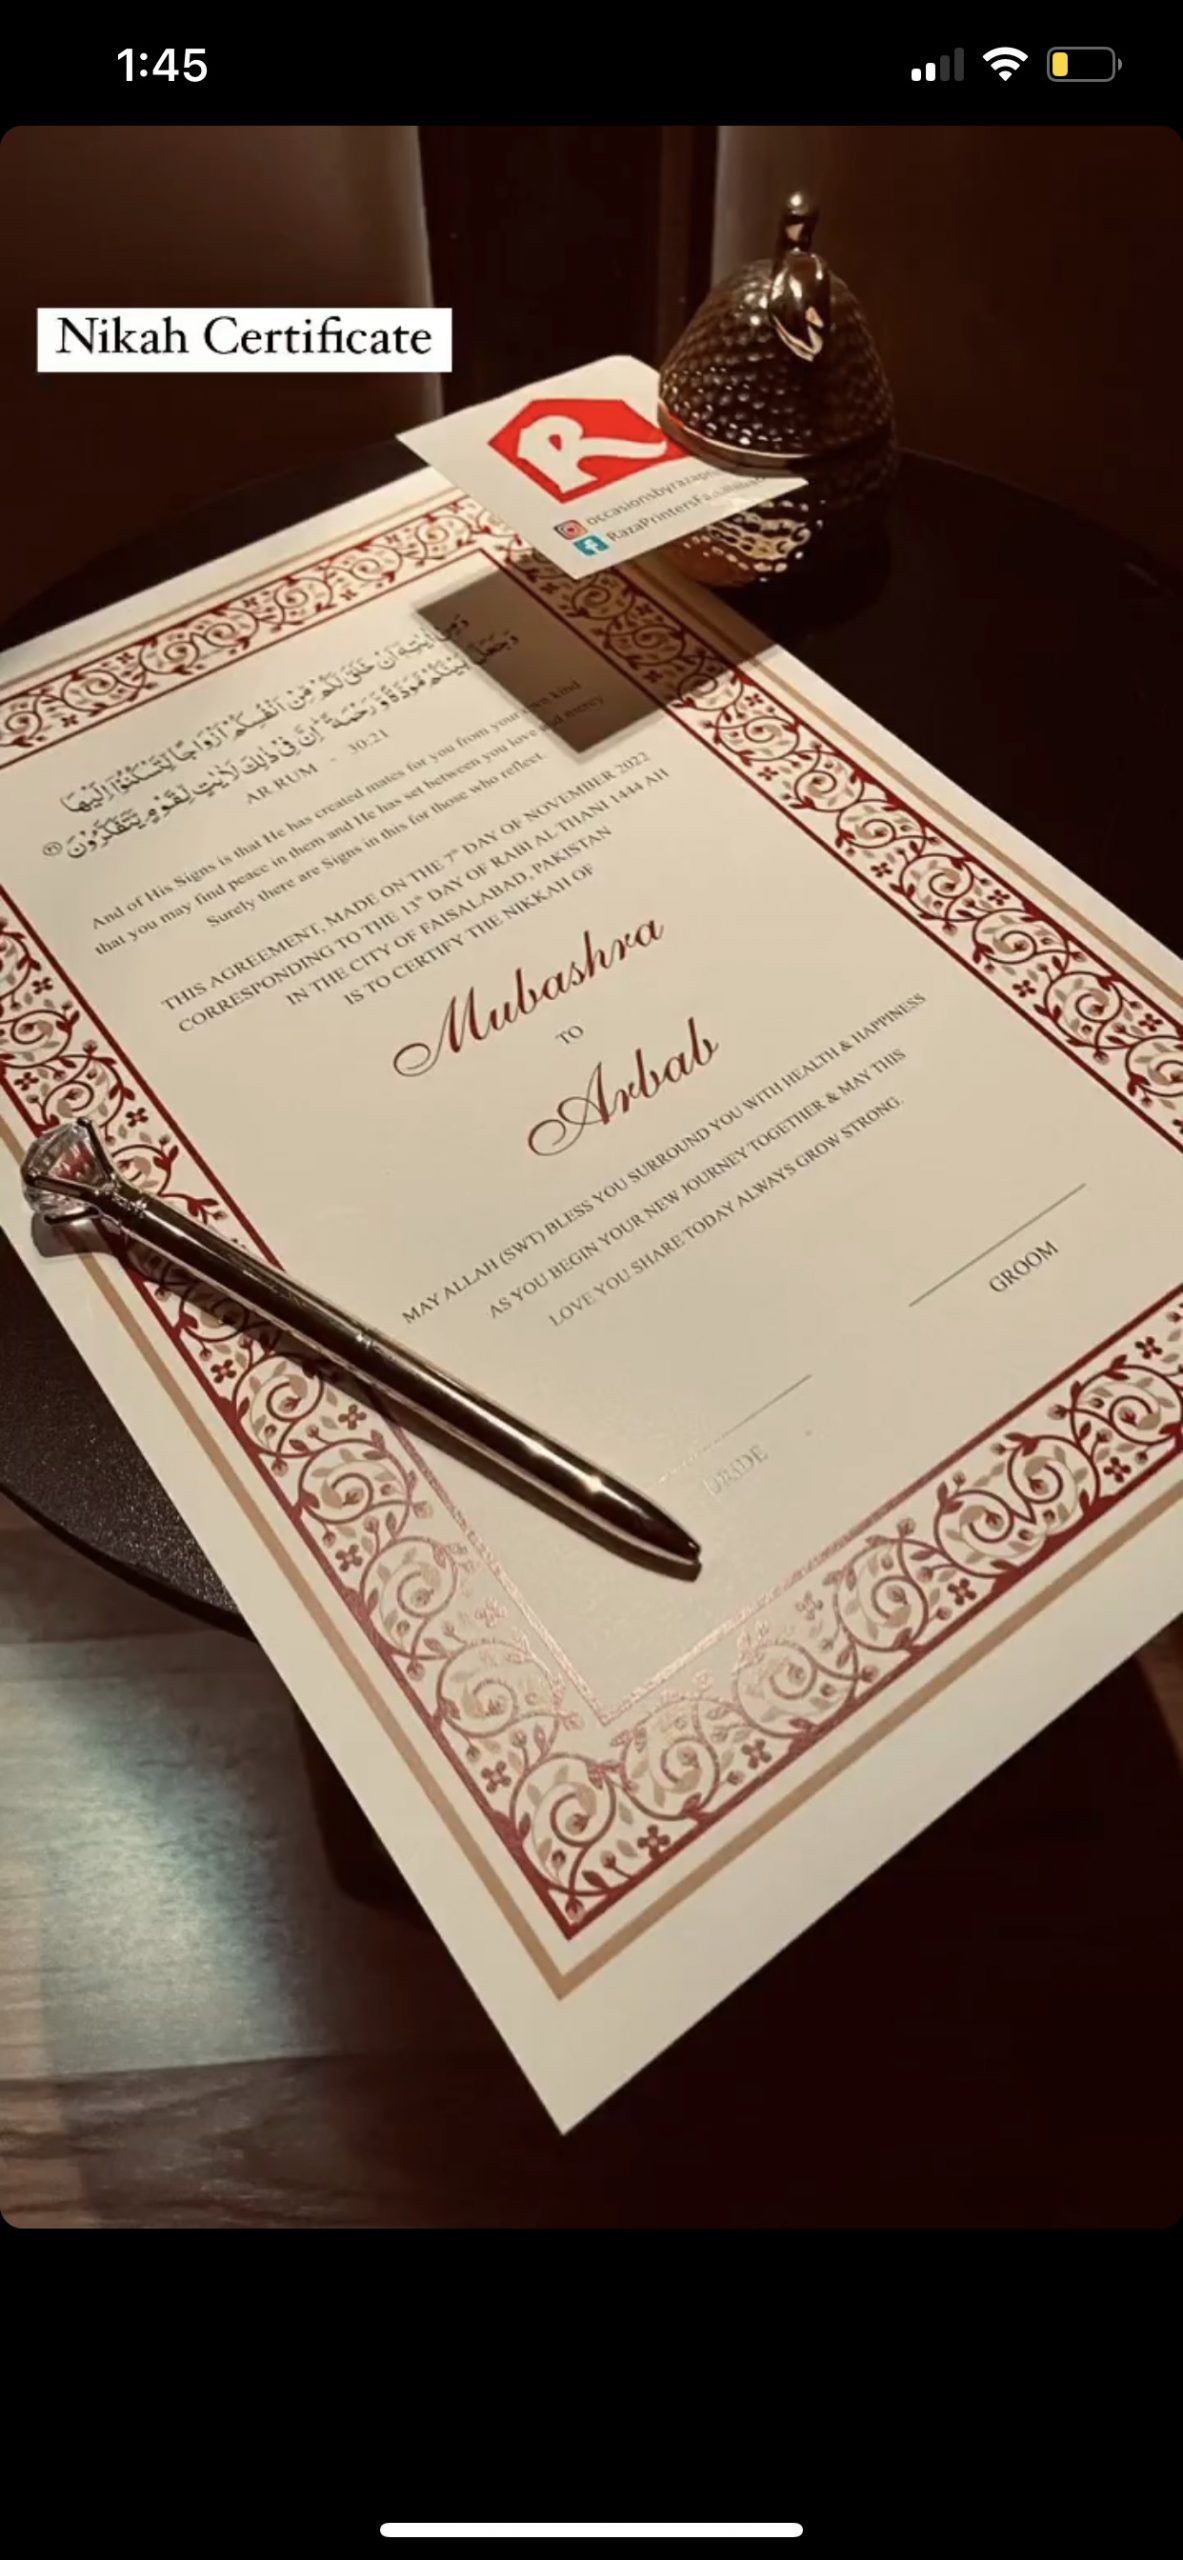 1:45
Nikah Certificate
R
RazaPrintersFa
وَمِنْ اٰيٰتِهٖٓ اَنْ خَلَقَ لَكُمْ مِّنْ اَنْفُسِكُمْ اَزْوَاجًا لِّتَسْكُنُوْٓا اِلَيْهَا
وَجَعَلَ بَيْنَكُمْ مَّوَدَّةً وَّرَحْمَةً ؕ اِنَّ فِيْ ذٰلِكَ لَاٰيٰتٍ لِّقَوْمٍ يَّتَفَكَّرُوْنَ
AR RUM - 30:21
And of His Signs is that He has created mates for you from your own kind
that you may find peace in them and He has set between you love and mercy
Surely there are Signs in this for those who reflect.
THIS AGREEMENT, MADE ON THE 7th DAY OF NOVEMBER 2022
CORRESPONDING TO THE 13th DAY OF RABI AL THANI 1444 AH
IN THE CITY OF FAISALABAD, PAKISTAN
IS TO CERTIFY THE NIKKAH OF
Mubashra
TO
Arbab
MAY ALLAH (SWT) BLESS YOU SURROUND YOU WITH HEALTH & HAPPINESS
AS YOU BEGIN YOUR NEW JOURNEY TOGETHER & MAY THIS
LOVE YOU SHARE TODAY ALWAYS GROW STRONG.
GROOM
BRIDE